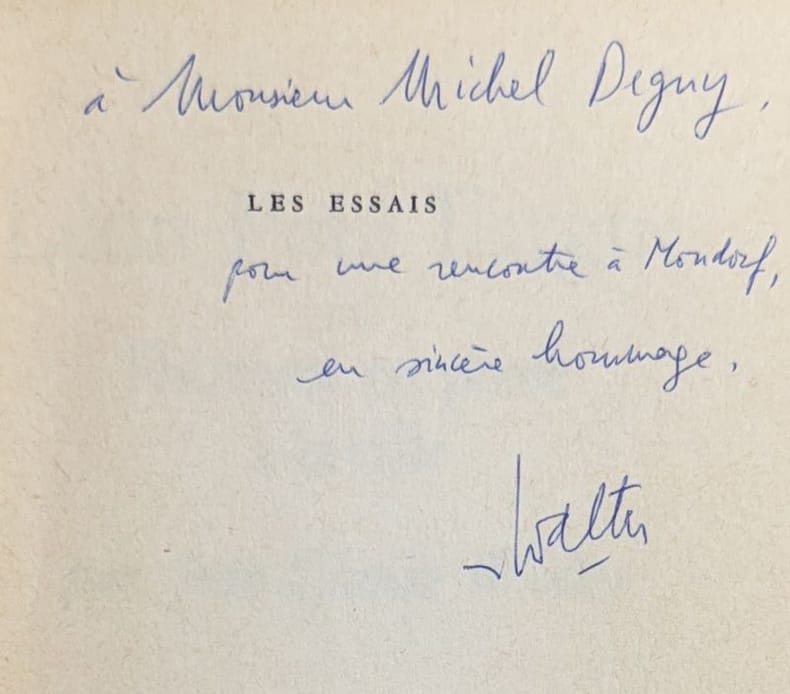 à Monsieur Michel Deguy,
LES ESSAIS
pour une rencontre à Mondorf,
en sincère hommage.
JWalter